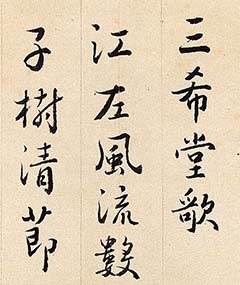 三希堂歌
江左風流數
子樹清節